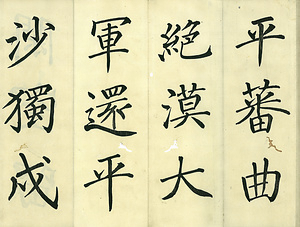 平蕃曲
絕漠大
軍還平
沙獨戍